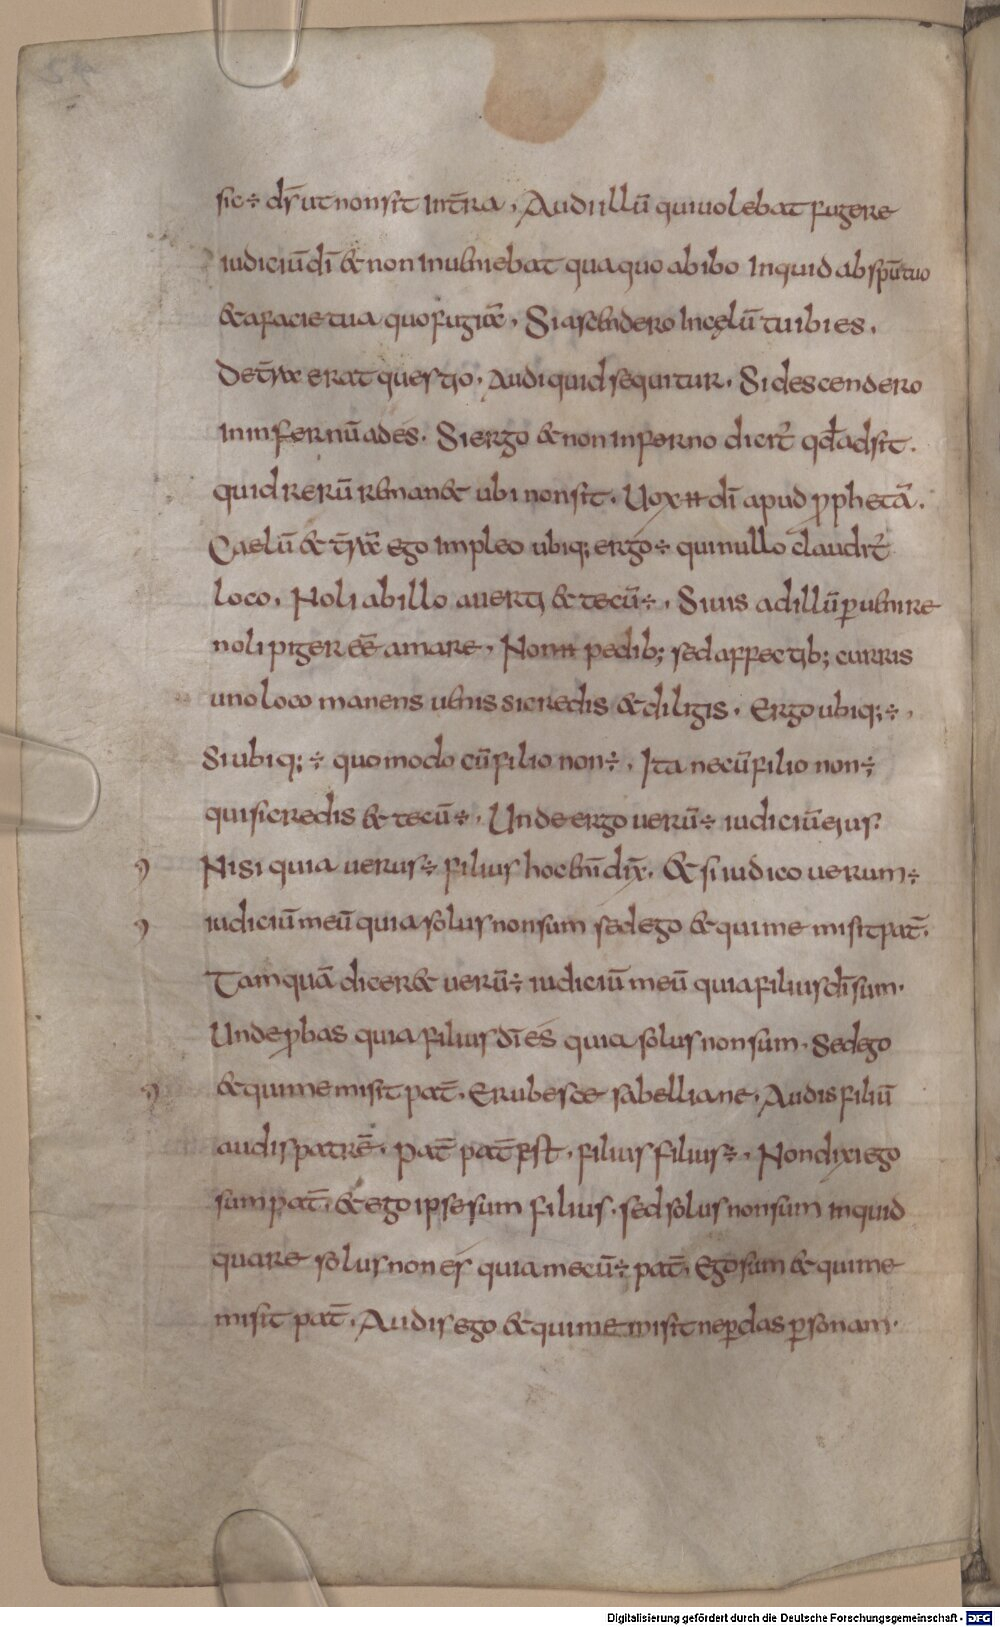 sic ÷ d̅s ut non sit in t̅ra. Audi illū qui uolebat fugere
iudiciū dī & non inueniebat qua quo abibo inquid ab spū tuo
& a facie tua quo fugiā. Si ascendero in cęlū tu ibi es.
De t̅ra erat questio. Audi quid sequitur. Si descendero
in infernū ades. Si ergo & non inferno dicit̃ qđ adsit.
quid rerū reman& ubi non sit. Uox dī apud pphetā.
Caelū & t̅rā ego impleo ubiq; ergo ÷ qui nullo claudit̃
loco. Noli ab illo auerti & tecū ÷. Si uis ad illū peruenire
noli piger eē amare. Non pedib; sed affectib; curris
uno loco manens uenis si credis & diligis. Ergo ubiq; ÷.
Si ubiq; ÷ quomodo cū filio non ÷. Ita ne cū filio non ÷
qui si credis & tecū ÷. Unde ergo uerū ÷ iudiciū eius.
Nisi quia uerus ÷ filius hoc enī dix̄. & si iudico uerum ÷
iudiciū meū quia solus non sum sed ego & qui me misit pat̄.
Tamquā dicer& uerū ÷ iudiciū meū quia filius dī sum.
Unde pbas quia filius dī es quia solus non sum. Sed ego
& qui me misit pat̄. Erubesce sabelliane. Audis filiū
audis patrē. Pat̄ pat̄ est. filius filius ÷. Non dixi ego
sum pat̄. & ego ipse sum filius. sed solus non sum inquid
quare solus non es quia mecū ÷ pat̄. Ego sum & qui me
misit pat̄. Audis ego & qui me misit ne pdas psonam.
Digitalisierung gefördert durch die Deutsche Forschungsgemeinschaft - DFG